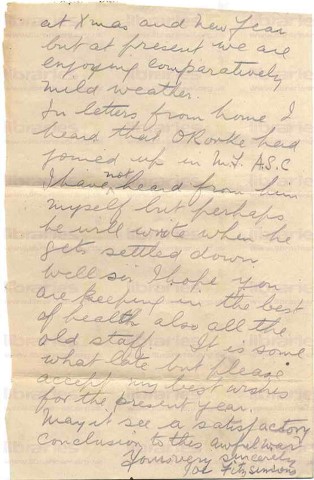 at Xmas and New Year
but at present we are
enjoying comparatively
mild weather.
In letters from home I
heard that O'Rorke had
joined up in M.T. A.S.C
I have not heard from him
myself but perhaps
he will write when he
gets settled down
Well sir, I hope you
are keeping in the best
of health also all the
old staff. It is some
what late but please
accept my best wishes
for the present year.
May it see a satisfactory
conclusion to this awful war
Yours very sincerely
Joe Fitzsimons